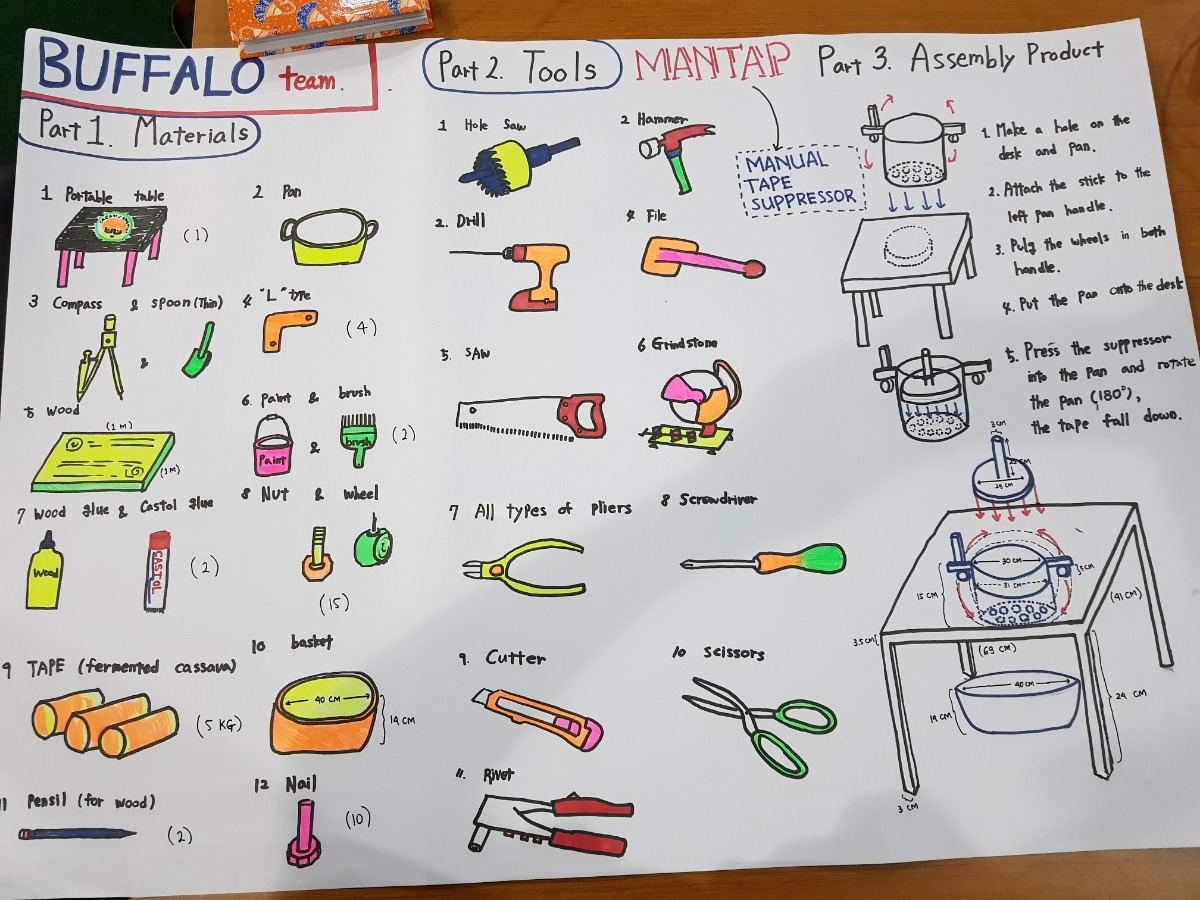 BUFFALO team.
Part 1. Materials
1 Portable table
(1)
2 Pan
3 Compass & spoon (Thin)
&
4 "L" type
(4)
5 Wood
(1 M)
(1M)
6. Paint & brush
Paint
&
brush
(2)
7 Wood glue & Castol glue
Wood
CASTOL
(2)
8 Nut & wheel
(15)
9 TAPE (fermented cassava)
(5 KG)
10 basket
40 CM
14 CM
11 Pensil (for wood)
(2)
12 Nail
(10)
Part 2. Tools
MANTAP
MANUAL
TAPE
SUPPRESSOR
1 Hole Saw
2 Hammer
2. Drill
4 File
5. SAW
6 Grindstone
7 All types of pliers
8 Screwdriver
9. Cutter
10 Scissors
11. Rivet
Part 3. Assembly Product
1. Make a hole on the
desk and pan.
2. Attach the stick to the
left pan handle.
3. Pulg the wheels in both
handle.
4. Put the Pan onto the desk
5. Press the suppressor
into the pan and rotate
the pan (180°),
the tape fall down.
3CM
29 CM
30 CM
31 CM
5CM
15 CM
(41 CM)
3.5CM
(69 CM)
40 CM
19 CM
29 CM
3 CM